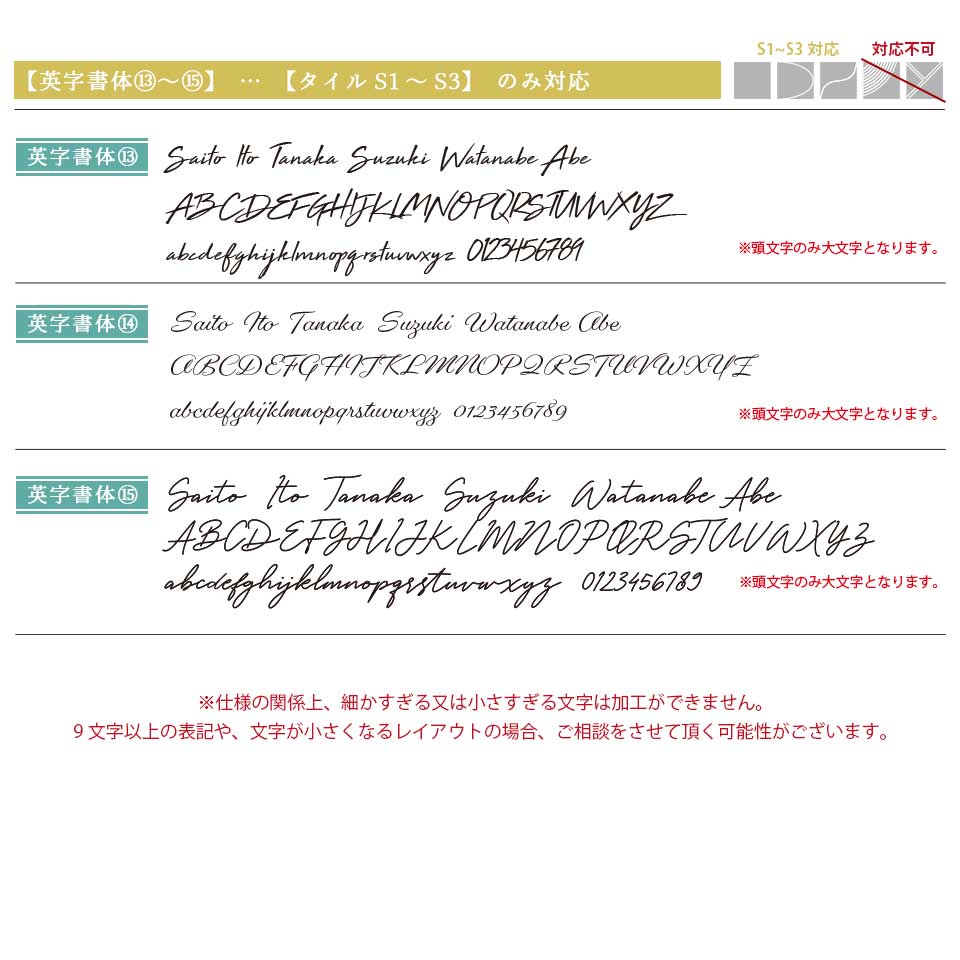 S1~S3 対応 対応不可
【英字書体⑬～⑮】 … 【タイル S1 ～ S3】 のみ対応
英字書体⑬
Saito Ito Tanaka Suzuki Watanabe Abe
ABCDEFGHIJKLMNOPQRSTUVWXYZ
abcdefghijklmnopqrstuvwxyz 0123456789
※頭文字のみ大文字となります。
英字書体⑭
Saito Ito Tanaka Suzuki Watanabe Abe
ABCDEFGHIJKLMNOPQRSTUVWXYZ
abcdefghijklmnopqrstuvwxyz 0123456789
※頭文字のみ大文字となります。
英字書体⑮
Saito Ito Tanaka Suzuki Watanabe Abe
ABCDEFGHIJKLMNOPQRSTUVWXYZ
abcdefghijklmnopqrstuvwxyz 0123456789
※頭文字のみ大文字となります。
※仕様の関係上、細かすぎる又は小さすぎる文字は加工ができません。
9 文字以上の表記や、文字が小さくなるレイアウトの場合、ご相談をさせて頂く可能性がございます。